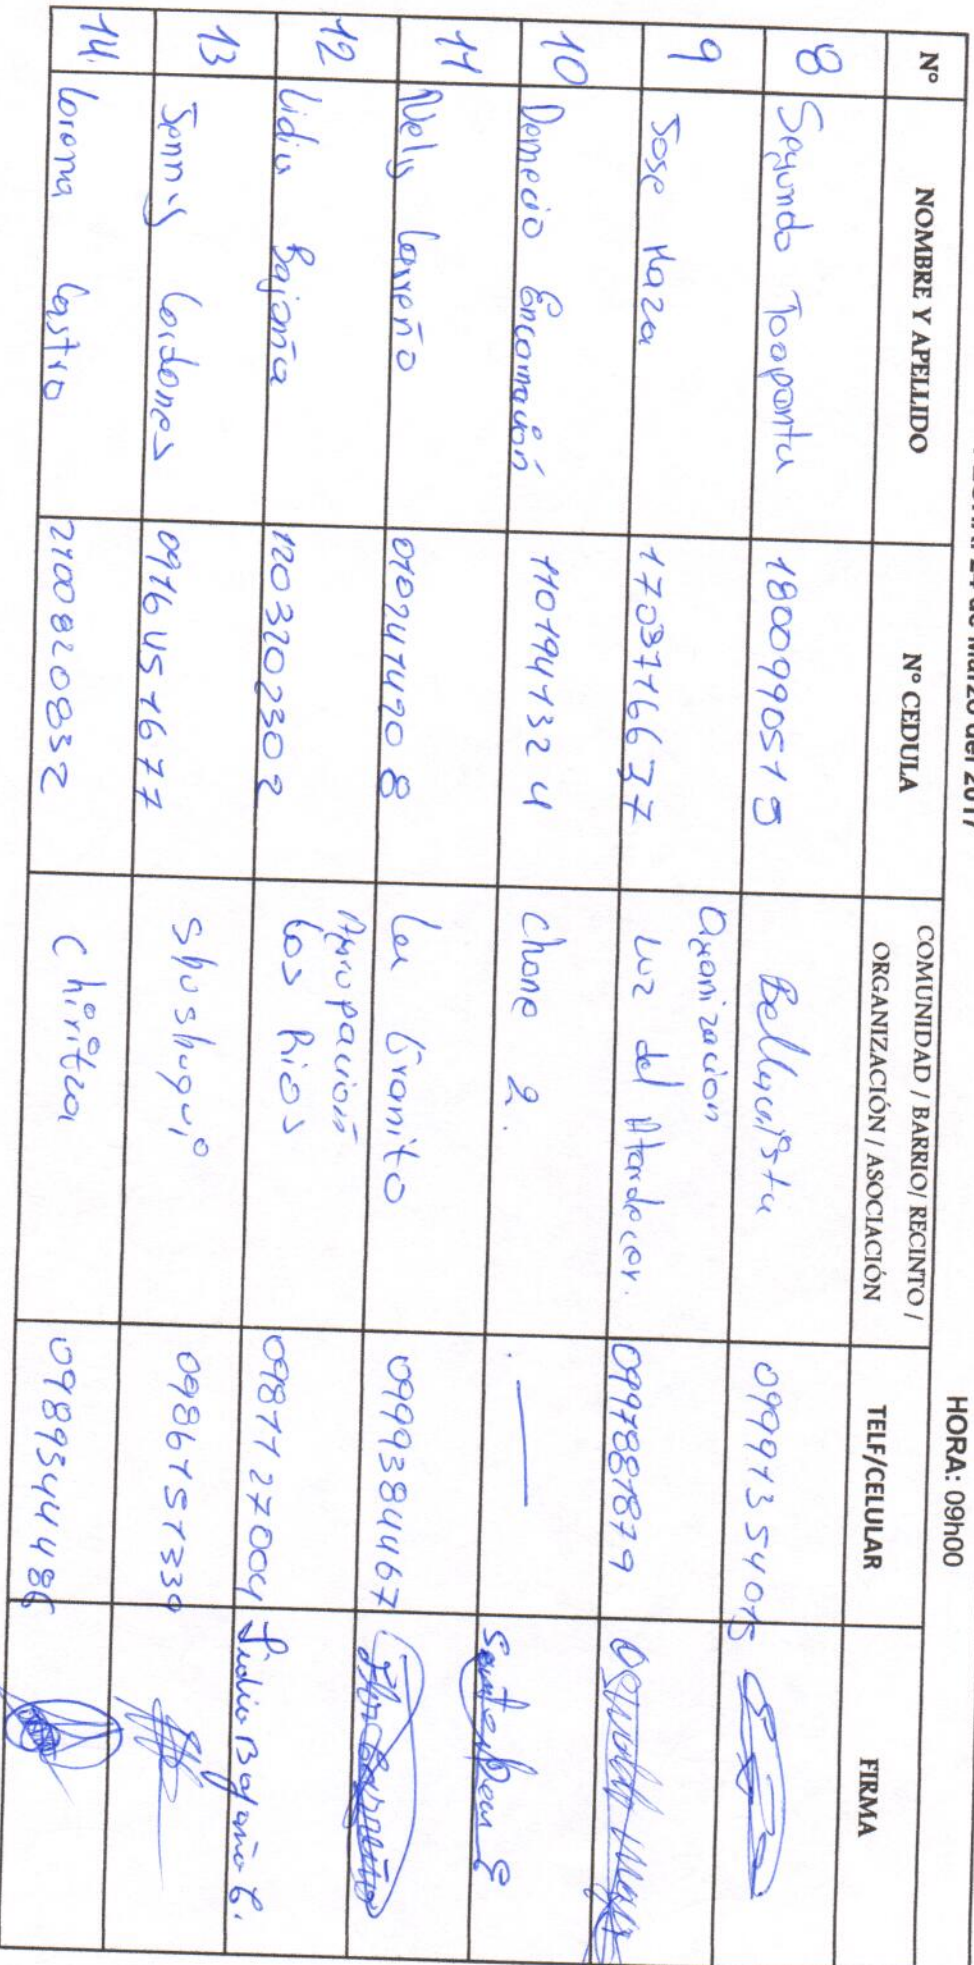 24 de Marzo del 2017
HORA: 09h00
Nº NOMBRE Y APELLIDO Nº CEDULA COMUNIDAD / BARRIO/ RECINTO / ORGANIZACIÓN / ASOCIACIÓN TELF/CELULAR FIRMA
8 Segundo Toapanta 1800990515 Bellavista 0999135405
9 Jose Maza 1703716637 Organizacion Luz del Atardecer. 0997881879
10 Demecio Encarnación 1101941324 Chone 2. —
11 Nely Carreño 0102414908 La Granito 0999384467
12 Lidia Bajaña 1203202302 Agrupación Los Rios 0981127004 Lidia Bajaña C.
13 Jenny Cordones 0916451677 Shushuqui 0986151330
14. Lorena Castro 2100820832 Chiritza 0989344486